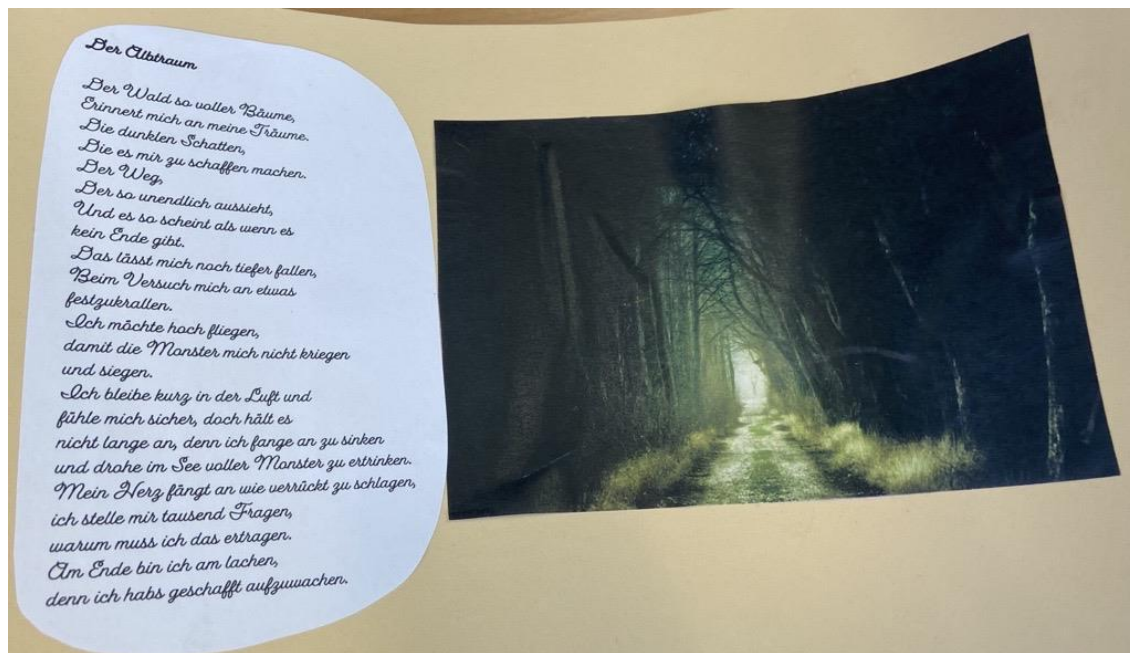 Der Albtraum
Der Wald so voller Bäume,
Erinnert mich an meine Träume.
Die dunklen Schatten,
Die es mir zu schaffen machen.
Der Weg,
Der so unendlich aussieht,
Und es so scheint als wenn es
kein Ende gibt.
Das lässt mich noch tiefer fallen,
Beim Versuch mich an etwas
festzukrallen.
Ich möchte hoch fliegen,
damit die Monster mich nicht kriegen
und siegen.
Ich bleibe kurz in der Luft und
fühle mich sicher, doch hält es
nicht lange an, denn ich fange an zu sinken
und drohe im See voller Monster zu ertrinken.
Mein Herz fängt an wie verrückt zu schlagen,
ich stelle mir tausend Fragen,
warum muss ich das ertragen.
Am Ende bin ich am lachen,
denn ich habs geschafft aufzuwachen.